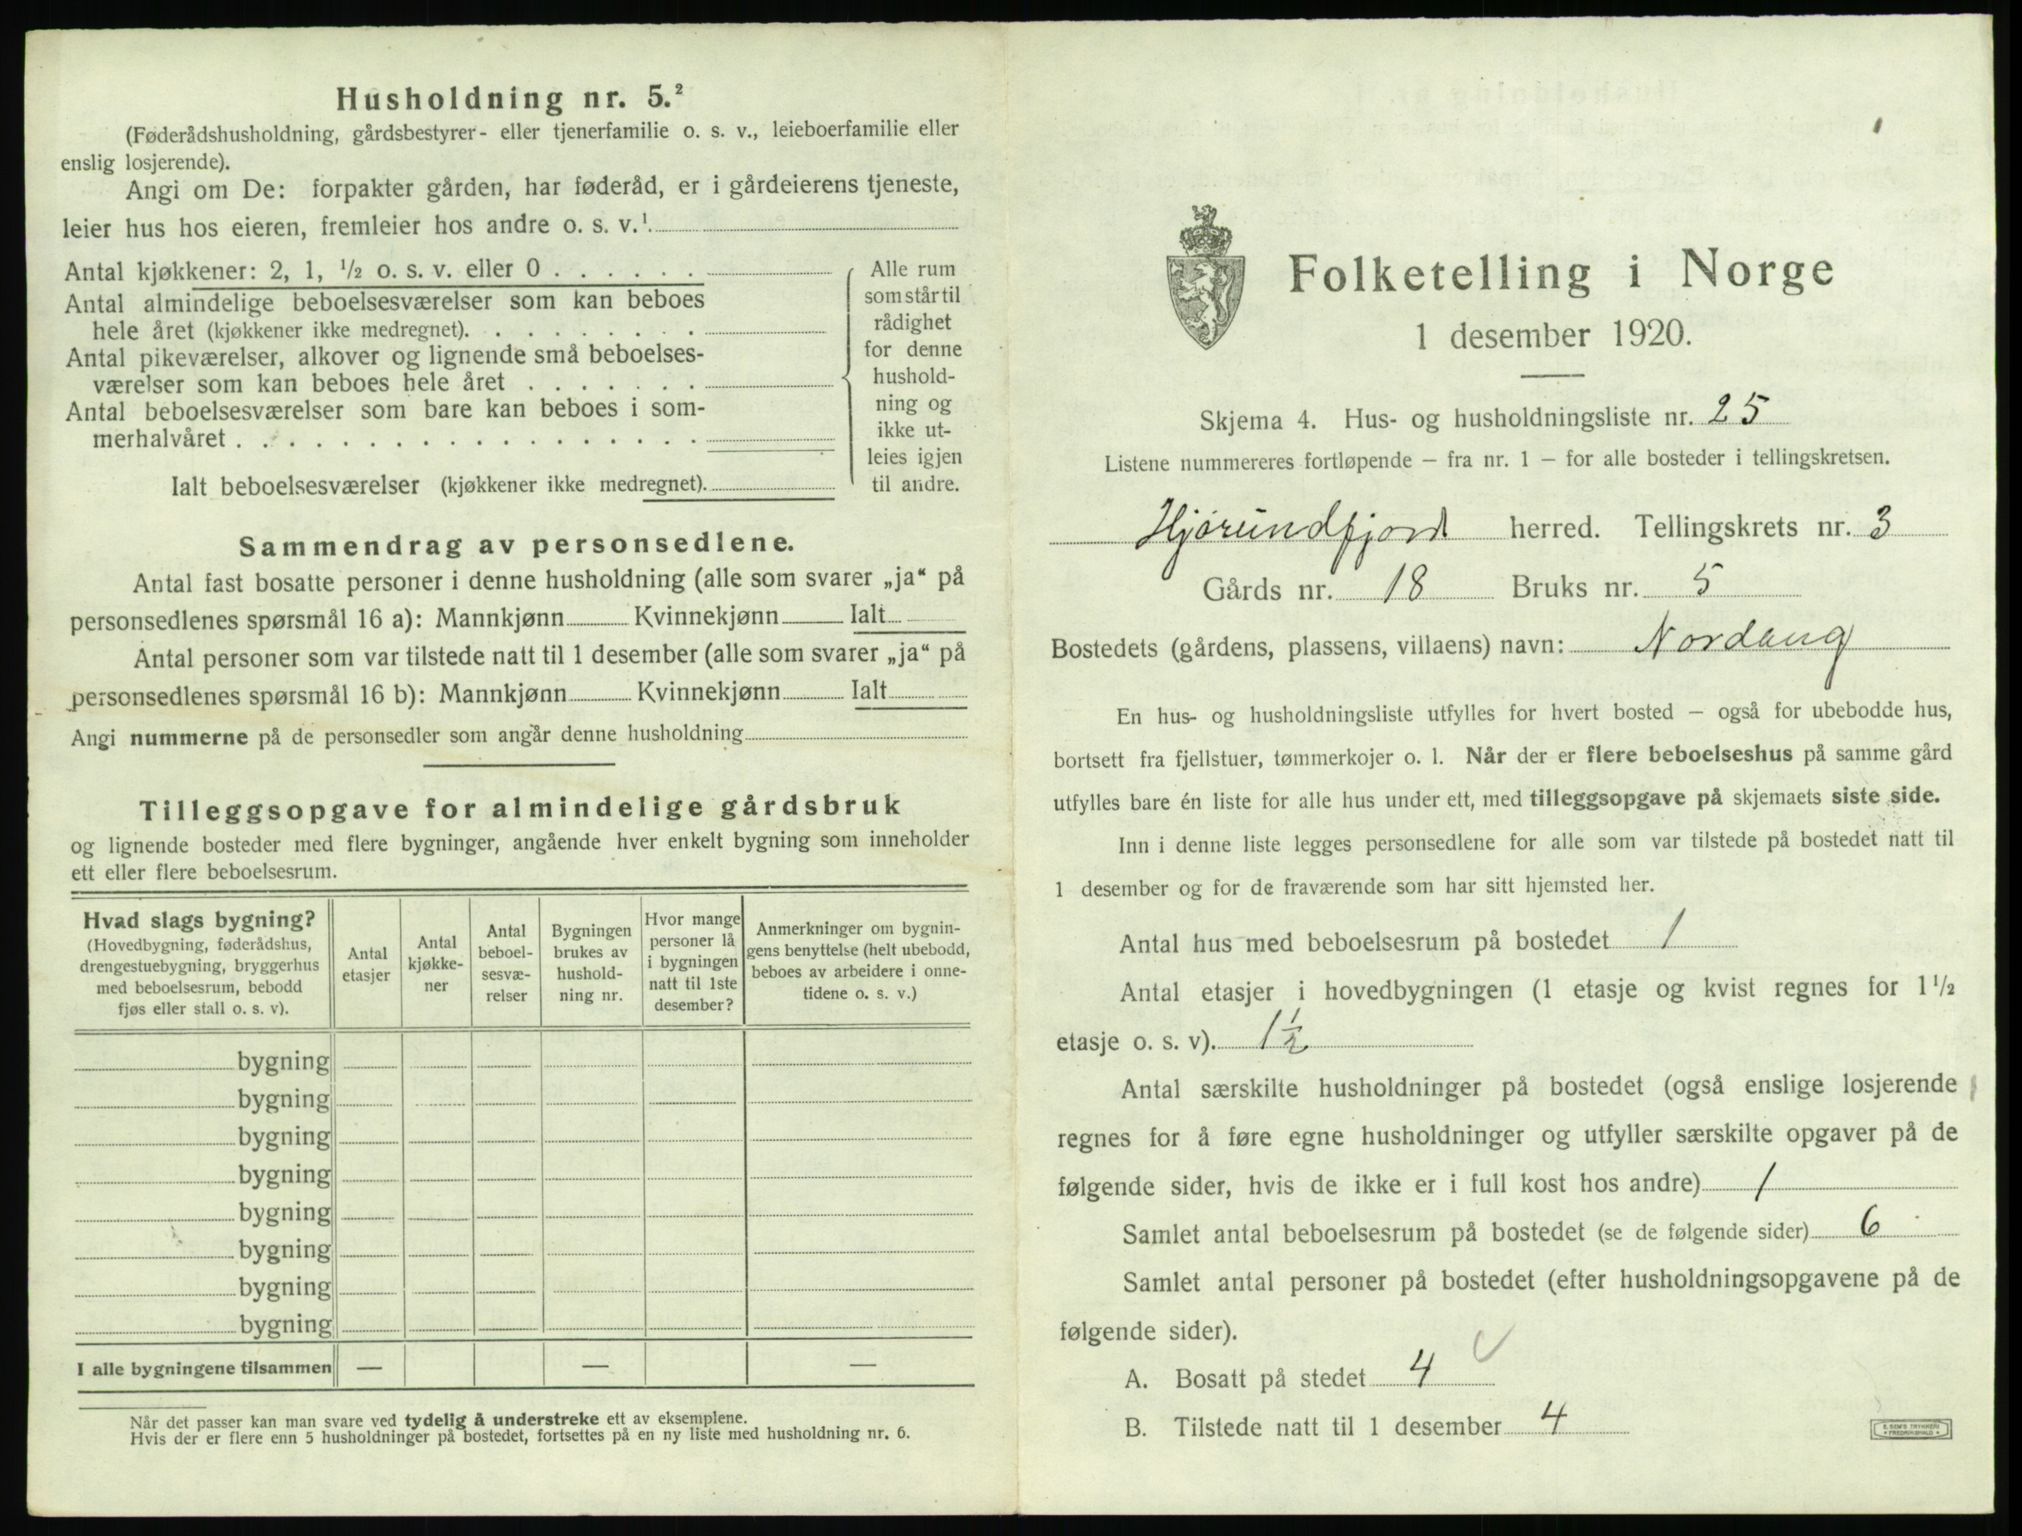 Husholdning nr. 5.²
(Føderådshusholdning, gårdsbestyrer- eller tjenerfamilie o. s. v., leieboerfamilie eller
enslig losjerende).
Angi om De: forpakter gården, har føderåd, er i gårdeierens tjeneste,
leier hus hos eieren, fremleier hos andre o. s. v.¹
Antal kjøkkener: 2, 1, ½ o. s. v. eller 0
Antal almindelige beboelsesværelser som kan beboes
hele året (kjøkkener ikke medregnet).
Antal pikeværelser, alkover og lignende små beboelses-
værelser som kan beboes hele året
Antal beboelsesværelser som bare kan beboes i som-
merhalvåret
Ialt beboelsesværelser (kjøkkener ikke medregnet).
Alle rum
som står til
rådighet
for denne
hushold-
ning og
ikke ut-
leies igjen
til andre.
Sammendrag av personsedlene.
Antal fast bosatte personer i denne husholdning (alle som svarer „ja“ på
personsedlenes spørsmål 16 a): Mannkjønn Kvinnekjønn Ialt
Antal personer som var tilstede natt til 1 desember (alle som svarer „ja“ på
personsedlenes spørsmål 16 b): Mannkjønn Kvinnekjønn Ialt
Angi nummerne på de personsedler som angår denne husholdning
Tilleggsopgave for almindelige gårdsbruk
og lignende bosteder med flere bygninger, angående hver enkelt bygning som inneholder
ett eller flere beboelsesrum.
Hvad slags bygning?
(Hovedbygning, føderådshus,
drengestuebygning, bryggerhus
med beboelsesrum, bebodd
fjøs eller stall o. s. v).
Antal
etasjer
Antal
kjøkke-
ner
Antal
beboel-
sesvæ-
relser
Bygningen
brukes av
hushold-
ning nr.
Hvor mange
personer lå
i bygningen
natt til 1ste
desember?
Anmerkninger om bygnin-
gens benyttelse (helt ubebodd,
beboes av arbeidere i onne-
tidene o. s. v.)
bygning
bygning
bygning
bygning
bygning
bygning
bygning
bygning
I alle bygningene tilsammen — — —
Når det passer kan man svare ved tydelig å understreke ett av eksemplene.
Hvis der er flere enn 5 husholdninger på bostedet, fortsettes på en ny liste med husholdning nr. 6.
Folketelling i Norge
1 desember 1920.
Skjema 4. Hus- og husholdningsliste nr. 25
Listene nummereres fortløpende – fra nr. 1 – for alle bosteder i tellingskretsen.
Hjørundfjord herred. Tellingskrets nr. 3
Gårds nr. 18 Bruks nr. 5
Bostedets (gårdens, plassens, villaens) navn: Nordang
En hus- og husholdningsliste utfylles for hvert bosted – også for ubebodde hus,
bortsett fra fjellstuer, tømmerkojer o. l. Når der er flere beboelseshus på samme gård
utfylles bare én liste for alle hus under ett, med tilleggsopgave på skjemaets siste side.
Inn i denne liste legges personsedlene for alle som var tilstede på bostedet natt til
1 desember og for de fraværende som har sitt hjemsted her.
Antal hus med beboelsesrum på bostedet 1
Antal etasjer i hovedbygningen (1 etasje og kvist regnes for 1½
etasje o. s. v). 1½
Antal særskilte husholdninger på bostedet (også enslige losjerende
regnes for å føre egne husholdninger og utfyller særskilte opgaver på de
følgende sider, hvis de ikke er i full kost hos andre) 1
Samlet antal beboelsesrum på bostedet (se de følgende sider) 6
Samlet antal personer på bostedet (efter husholdningsopgavene på de
følgende sider).
A. Bosatt på stedet 4
B. Tilstede natt til 1 desember 4